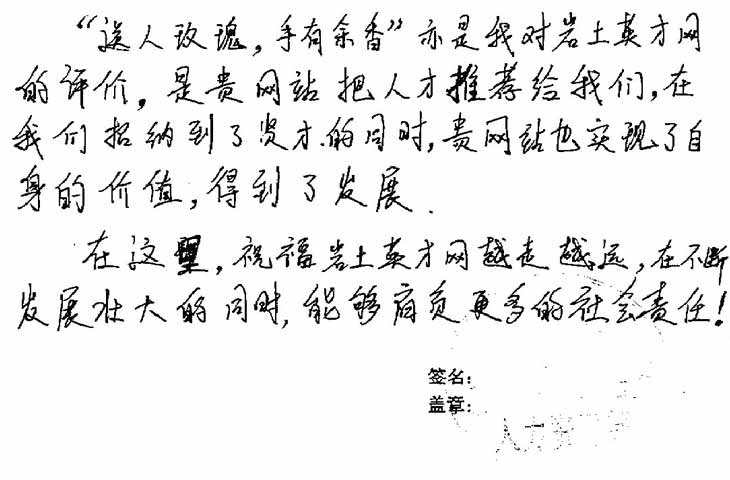 “送人玫瑰，手有余香”亦是我对岩土英才网
的评价，是贵网站把人才推荐给我们，在
我们招纳到了贤才的同时，贵网站也实现了自
身的价值，得到了发展.
在这里，祝福岩土英才网越走越远，在不断
发展壮大的同时，能够肩负更多的社会责任！
签名：
盖章：
人力资